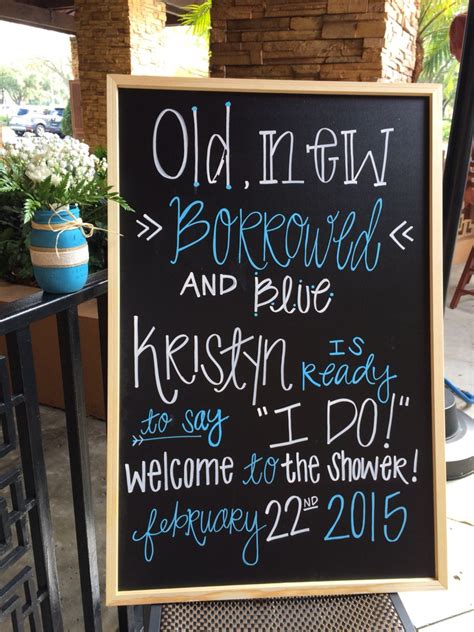 Old, new
» Borrowed «
AND Blue
Kristyn is ready
to say "I DO!"
welcome to the shower!
february 22ND 2015